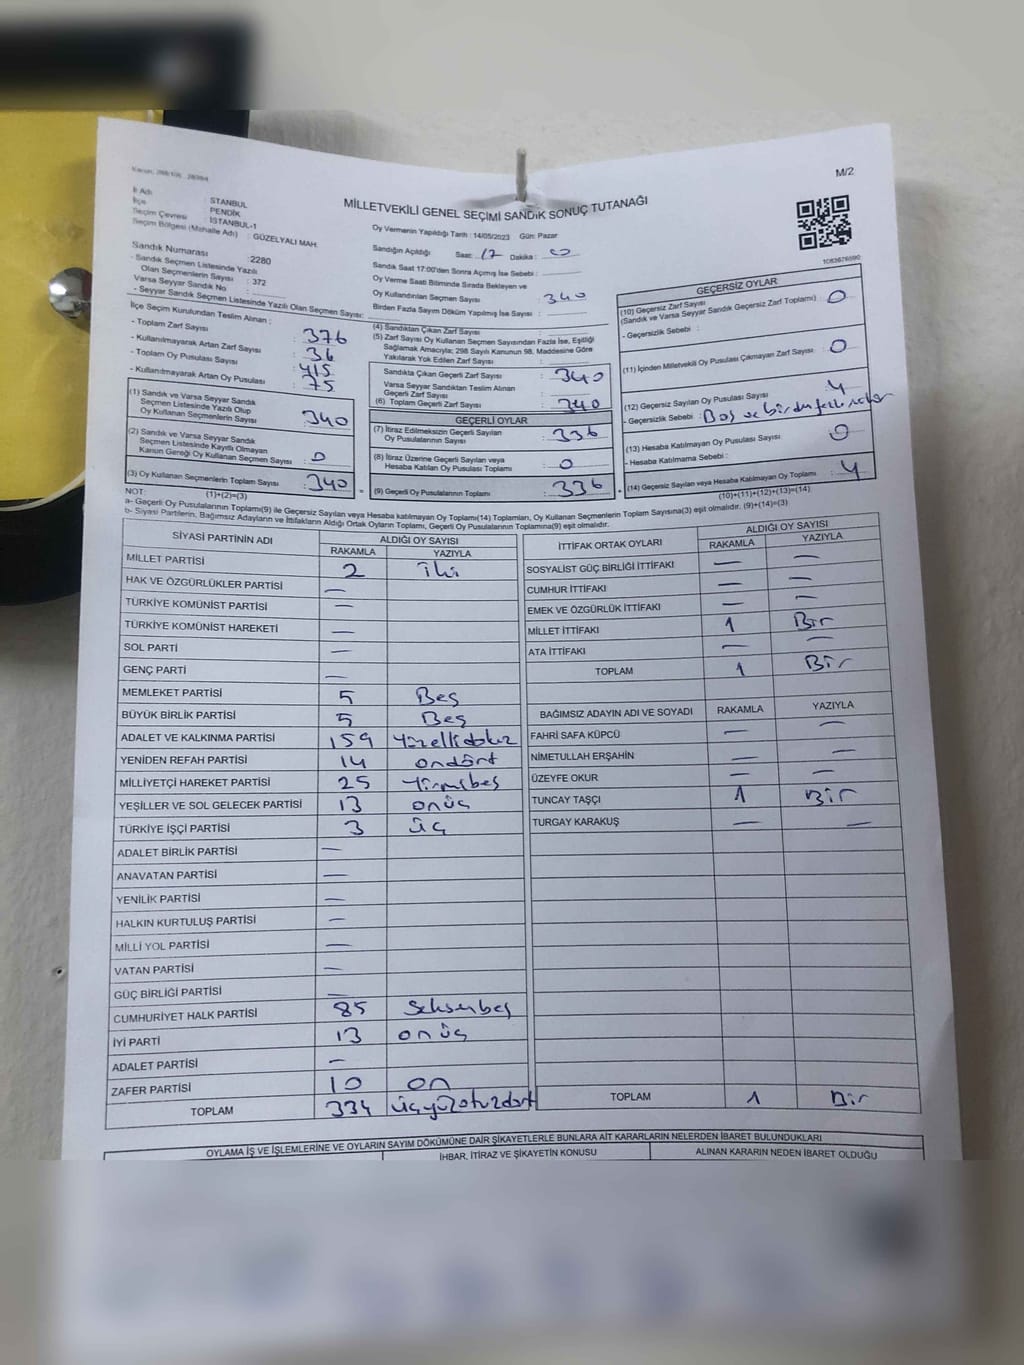 M/2
MİLLETVEKİLİ GENEL SEÇİMİ SANDIK SONUÇ TUTANAĞI
İl Adı : İSTANBUL
İlçe : PENDİK
Seçim Çevresi : İSTANBUL-1
Seçim Bölgesi (Mahalle Adı) : GÜZELYALI MAH.
Oy Vermenin Yapıldığı Tarih : 14/05/2023 Gün: Pazar
Sandığın Açıldığı Saat: 17 Dakika: 00
Sandık Saat 17:00'den Sonra Açımış İse Sebebi :
Oy Verme Saati Bitiminde Sırada Bekleyen ve
Oy Kullandırılan Seçmen Sayısı : 340
Birden Fazla Sayım Döküm Yapılmış İse Sayısı :
Sandık Numarası :2280
- Sandık Seçmen Listesinde Yazılı
Olan Seçmenlerin Sayısı : 372
Varsa Seyyar Sandık No :
- Seyyar Sandık Seçmen Listesinde Yazılı Olan Seçmen Sayısı:
İlçe Seçim Kurulundan Teslim Alınan :
- Toplam Zarf Sayısı : 376
- Kullanılmayarak Artan Zarf Sayısı : 36
- Toplam Oy Pusulası Sayısı : 415
- Kullanılmayarak Artan Oy Pusulası : 75
(1) Sandık ve Varsa Seyyar Sandık
Seçmen Listesinde Yazılı Olup
Oy Kullanan Seçmenlerin Sayısı : 340
(2) Sandık ve Varsa Seyyar Sandık
Seçmen Listesinde Kayıtlı Olmayan
Kanun Gereği Oy Kullanan Seçmen Sayısı : 0
(3) Oy Kullanan Seçmenlerin Toplam Sayısı : 340
(1)+(2)=(3)
(4) Sandıktan Çıkan Zarf Sayısı :
(5) Zarf Sayısı Oy Kullanan Seçmen Sayısından Fazla İse, Eşitliği
Sağlamak Amacıyla; 298 Sayılı Kanunun 98. Maddesine Göre
Yakılarak Yok Edilen Zarf Sayısı :
Sandıkta Çıkan Geçerli Zarf Sayısı : 340
Varsa Seyyar Sandıktan Teslim Alınan
Geçerli Zarf Sayısı :
(6) Toplam Geçerli Zarf Sayısı : 340
GEÇERLİ OYLAR
(7) İtiraz Edilmeksizin Geçerli Sayılan
Oy Pusulalarının Sayısı : 336
(8) İtiraz Üzerine Geçerli Sayılan veya
Hesaba Katılan Oy Pusulası Toplamı : 0
(9) Geçerli Oy Pusulalarının Toplamı : 336
1083676590
GEÇERSİZ OYLAR
(10) Geçersiz Zarf Sayısı
(Sandık ve Varsa Seyyar Sandık Geçersiz Zarf Toplamı) : 0
- Geçersizlik Sebebi :
(11) İçinden Milletvekili Oy Pusulası Çıkmayan Zarf Sayısı : 0
(12) Geçersiz Sayılan Oy Pusulası Sayısı : 4
- Geçersizlik Sebebi : Boş ve birden fazla
(13) Hesaba Katılmayan Oy Pusulası Sayısı : 0
- Hesaba Katılmama Sebebi :
(14) Geçersiz Sayılan veya Hesaba Katılmayan Oy Toplamı : 4
(10)+(11)+(12)+(13)=(14)
NOT:
a- Geçerli Oy Pusulalarının Toplamı(9) ile Geçersiz Sayılan veya Hesaba katılmayan Oy Toplamı(14) Toplamları, Oy Kullanan Seçmenlerin Toplam Sayısına(3) eşit olmalıdır. (9)+(14)=(3)
b- Siyasi Partilerin, Bağımsız Adayların ve İttifakların Aldığı Ortak Oyların Toplamı, Geçerli Oy Pusulalarının Toplamına(9) eşit olmalıdır.
SİYASİ PARTİNİN ADI ALDIĞI OY SAYISI
RAKAMLA YAZIYLA
MİLLET PARTİSİ 2 iki
HAK VE ÖZGÜRLÜKLER PARTİSİ —
TÜRKİYE KOMÜNİST PARTİSİ —
TÜRKİYE KOMÜNİST HAREKETİ —
SOL PARTİ —
GENÇ PARTİ —
MEMLEKET PARTİSİ 5 Beş
BÜYÜK BİRLİK PARTİSİ 5 Beş
ADALET VE KALKINMA PARTİSİ 159 Yüzellidokuz
YENİDEN REFAH PARTİSİ 14 ondört
MİLLİYETÇİ HAREKET PARTİSİ 25 Yirmibeş
YEŞİLLER VE SOL GELECEK PARTİSİ 13 onüç
TÜRKİYE İŞÇİ PARTİSİ 3 üç
ADALET BİRLİK PARTİSİ —
ANAVATAN PARTİSİ —
YENİLİK PARTİSİ —
HALKIN KURTULUŞ PARTİSİ —
MİLLİ YOL PARTİSİ —
VATAN PARTİSİ —
GÜÇ BİRLİĞİ PARTİSİ —
CUMHURİYET HALK PARTİSİ 85 Seksenbeş
İYİ PARTİ 13 onüç
ADALET PARTİSİ —
ZAFER PARTİSİ 10 on
TOPLAM 334 üçyüzotuzdört
İTTİFAK ORTAK OYLARI ALDIĞI OY SAYISI
RAKAMLA YAZIYLA
SOSYALİST GÜÇ BİRLİĞİ İTTİFAKI — —
CUMHUR İTTİFAKI — —
EMEK VE ÖZGÜRLÜK İTTİFAKI — —
MİLLET İTTİFAKI 1 Bir
ATA İTTİFAKI — —
TOPLAM 1 Bir
BAĞIMSIZ ADAYIN ADI VE SOYADI RAKAMLA YAZIYLA
FAHRİ SAFA KÜPCÜ — —
NİMETULLAH ERŞAHİN — —
ÜZEYFE OKUR — —
TUNCAY TAŞÇI 1 Bir
TURGAY KARAKUŞ — —
TOPLAM 1 Bir
OYLAMA İŞ VE İŞLEMLERİNE VE OYLARIN SAYIM DÖKÜMÜNE DAİR ŞİKAYETLERLE BUNLARA AİT KARARLARIN NELERDEN İBARET BULUNDUKLARI
İHBAR, İTİRAZ VE ŞİKAYETİN KONUSU
ALINAN KARARIN NEDEN İBARET OLDUĞU